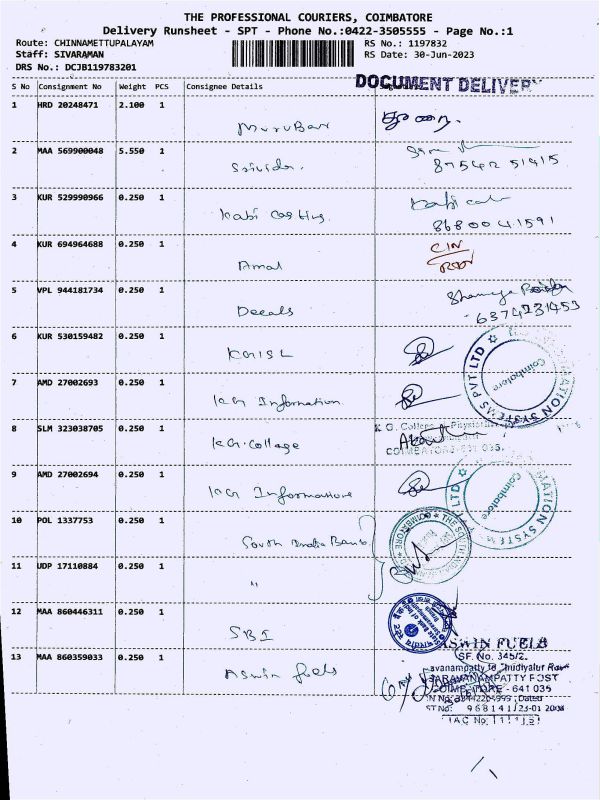 THE PROFESSIONAL COURIERS, COIMBATORE
Delivery Runsheet - SPT - Phone No.:0422-3505555 - Page No.:1
Route: CHINNAMETTUPALAYAM RS No.: 1197832
Staff: SIVARAMAN RS Date: 30-Jun-2023
DRS No.: DCJB119783201
DOCUMENT DELIVERY
S No Consignment No Weight PCS Consignee Details
1 HRD 20248471 2.100 1
2 MAA 569900048 5.550 1
87542 51415
3 KUR 529990966 0.250 1 Kabi Casting
8680041591
4 KUR 694964688 0.250 1 Amal
5 VPL 944181734 0.250 1 Decals
6374231453
6 KUR 530159482 0.250 1 KGISL
7 AMD 27002693 0.250 1 KG Information
Coimbatore
SYSTEMS PVT LTD
8 SLM 323038705 0.250 1 KG. College
K G. College of Physiotherapy
COIMBATORE - 641 035.
9 AMD 27002694 0.250 1 KG Information
Coimbatore
10 POL 1337753 0.250 1 South India Bank
11 UDP 17110884 0.250 1 "
12 MAA 860446311 0.250 1 SBI
13 MAA 860359033 0.250 1 Aswin fuels
ASWIN FUELS
SF. No. 345/2,
SARAVANAMPATTY POST
COIMBATORE - 641 035